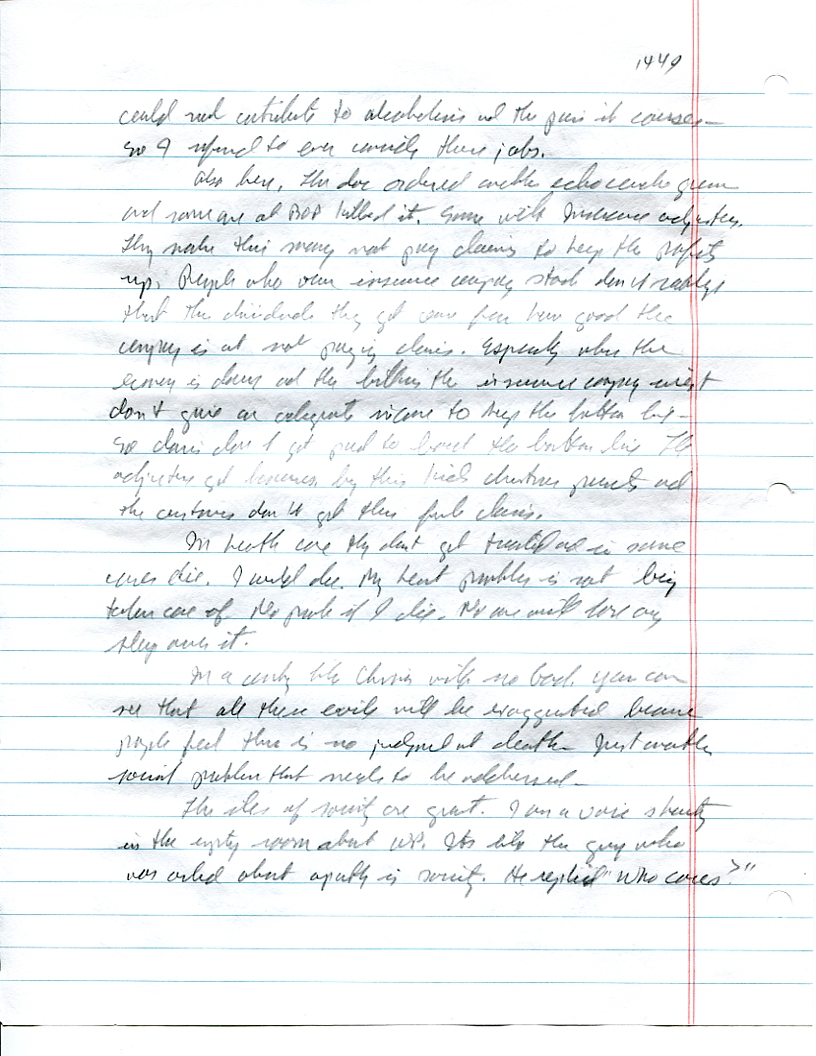 1449
could not contribute to alcoholism and the pain it causes—
so I refused to even consider these jobs.
Also here, the doc ordered another echocardiogram
and someone at BOP killed it. Same with Insurance adjusters.
They make their money not pay claims to keep the profits
up. People who own insurance company stock don't realize
that the dividends they get come from how good the
company is at not paying claims. Especially when the
economy is down and the the insurance company invest
don't give an adequate income to keep the bottom line—
so claims don't get paid to boost the bottom line. The
adjusters get bonuses buy their kids christmas presents and
the customers don't get their full claims.
In health care they don't get treated and in some
cases die. I could die. My heart problem is not being
taken care of. No problem if I die. No one will lose any
sleep over it.
In a country like China with no God, you can
see that all these evils will be exaggerated because
people feel there is no judgment at death. Just another
social problem that needs to be addressed.
The ills of society are great. I am a voice shouting
in the empty room about WP. It's like the guy who
was asked about apathy in society. He replied "Who cares?"